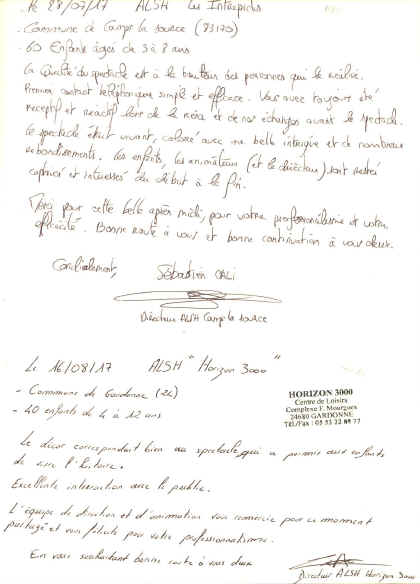 Le 28/07/17 ALSH Les Intrépides
- Commune de Camps la source (83170)
- 60 Enfants âgés de 3 à 8 ans
La Qualité du spectacle est à la hauteur des personnes qui le réalise.
Premier contact téléphonique simple et efficace. Vous avez toujours été
réceptif et réactif lors de la mise et de nos échanges avant le spectacle.
Le spectacle était vivant, coloré avec une belle intrigue et de nombreux
rebondissements. Les enfants, les animateurs (et le directeur) sont restés
captivés et intéressés du début à la fin.
Merci pour cette belle après midi, pour votre professionnalisme et votre
efficacité. Bonne route à vous et bonne continuation à vous deux.
Cordialement,
Sébastien CALI
Directeur ALSH Camps la source
Le 16/08/17 ALSH "Horizon 3000"
- Commune de Gardonne (24)
- 40 enfants de 4 à 12 ans
HORIZON 3000
Centre de Loisirs
Complexe F. Mourgues
24680 GARDONNE
Tél/Fax : 05 53 22 89 77
Le décor correspondant bien au spectacle, qui a permis aux enfants
de vivre l'histoire.
Excellente interaction avec le public.
L'équipe de direction et d'animation vous remercie pour ce moment
partagé et vous félicite pour votre professionnalisme.
En vous souhaitant bonne route à vous deux
Directeur ALSH Horizon 3000